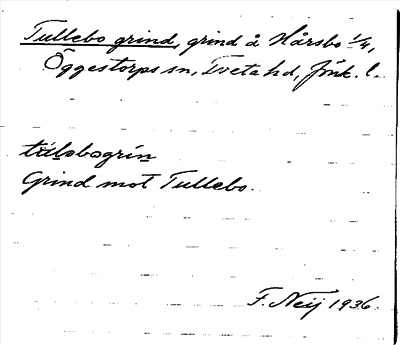 Tullebo grind, grind å Hårsbo 1/4,
Öggestorps sn, Tveta hd, Jönk. l.
tulabogrin
Grind mot Tullebo.
F. Neij 1936.